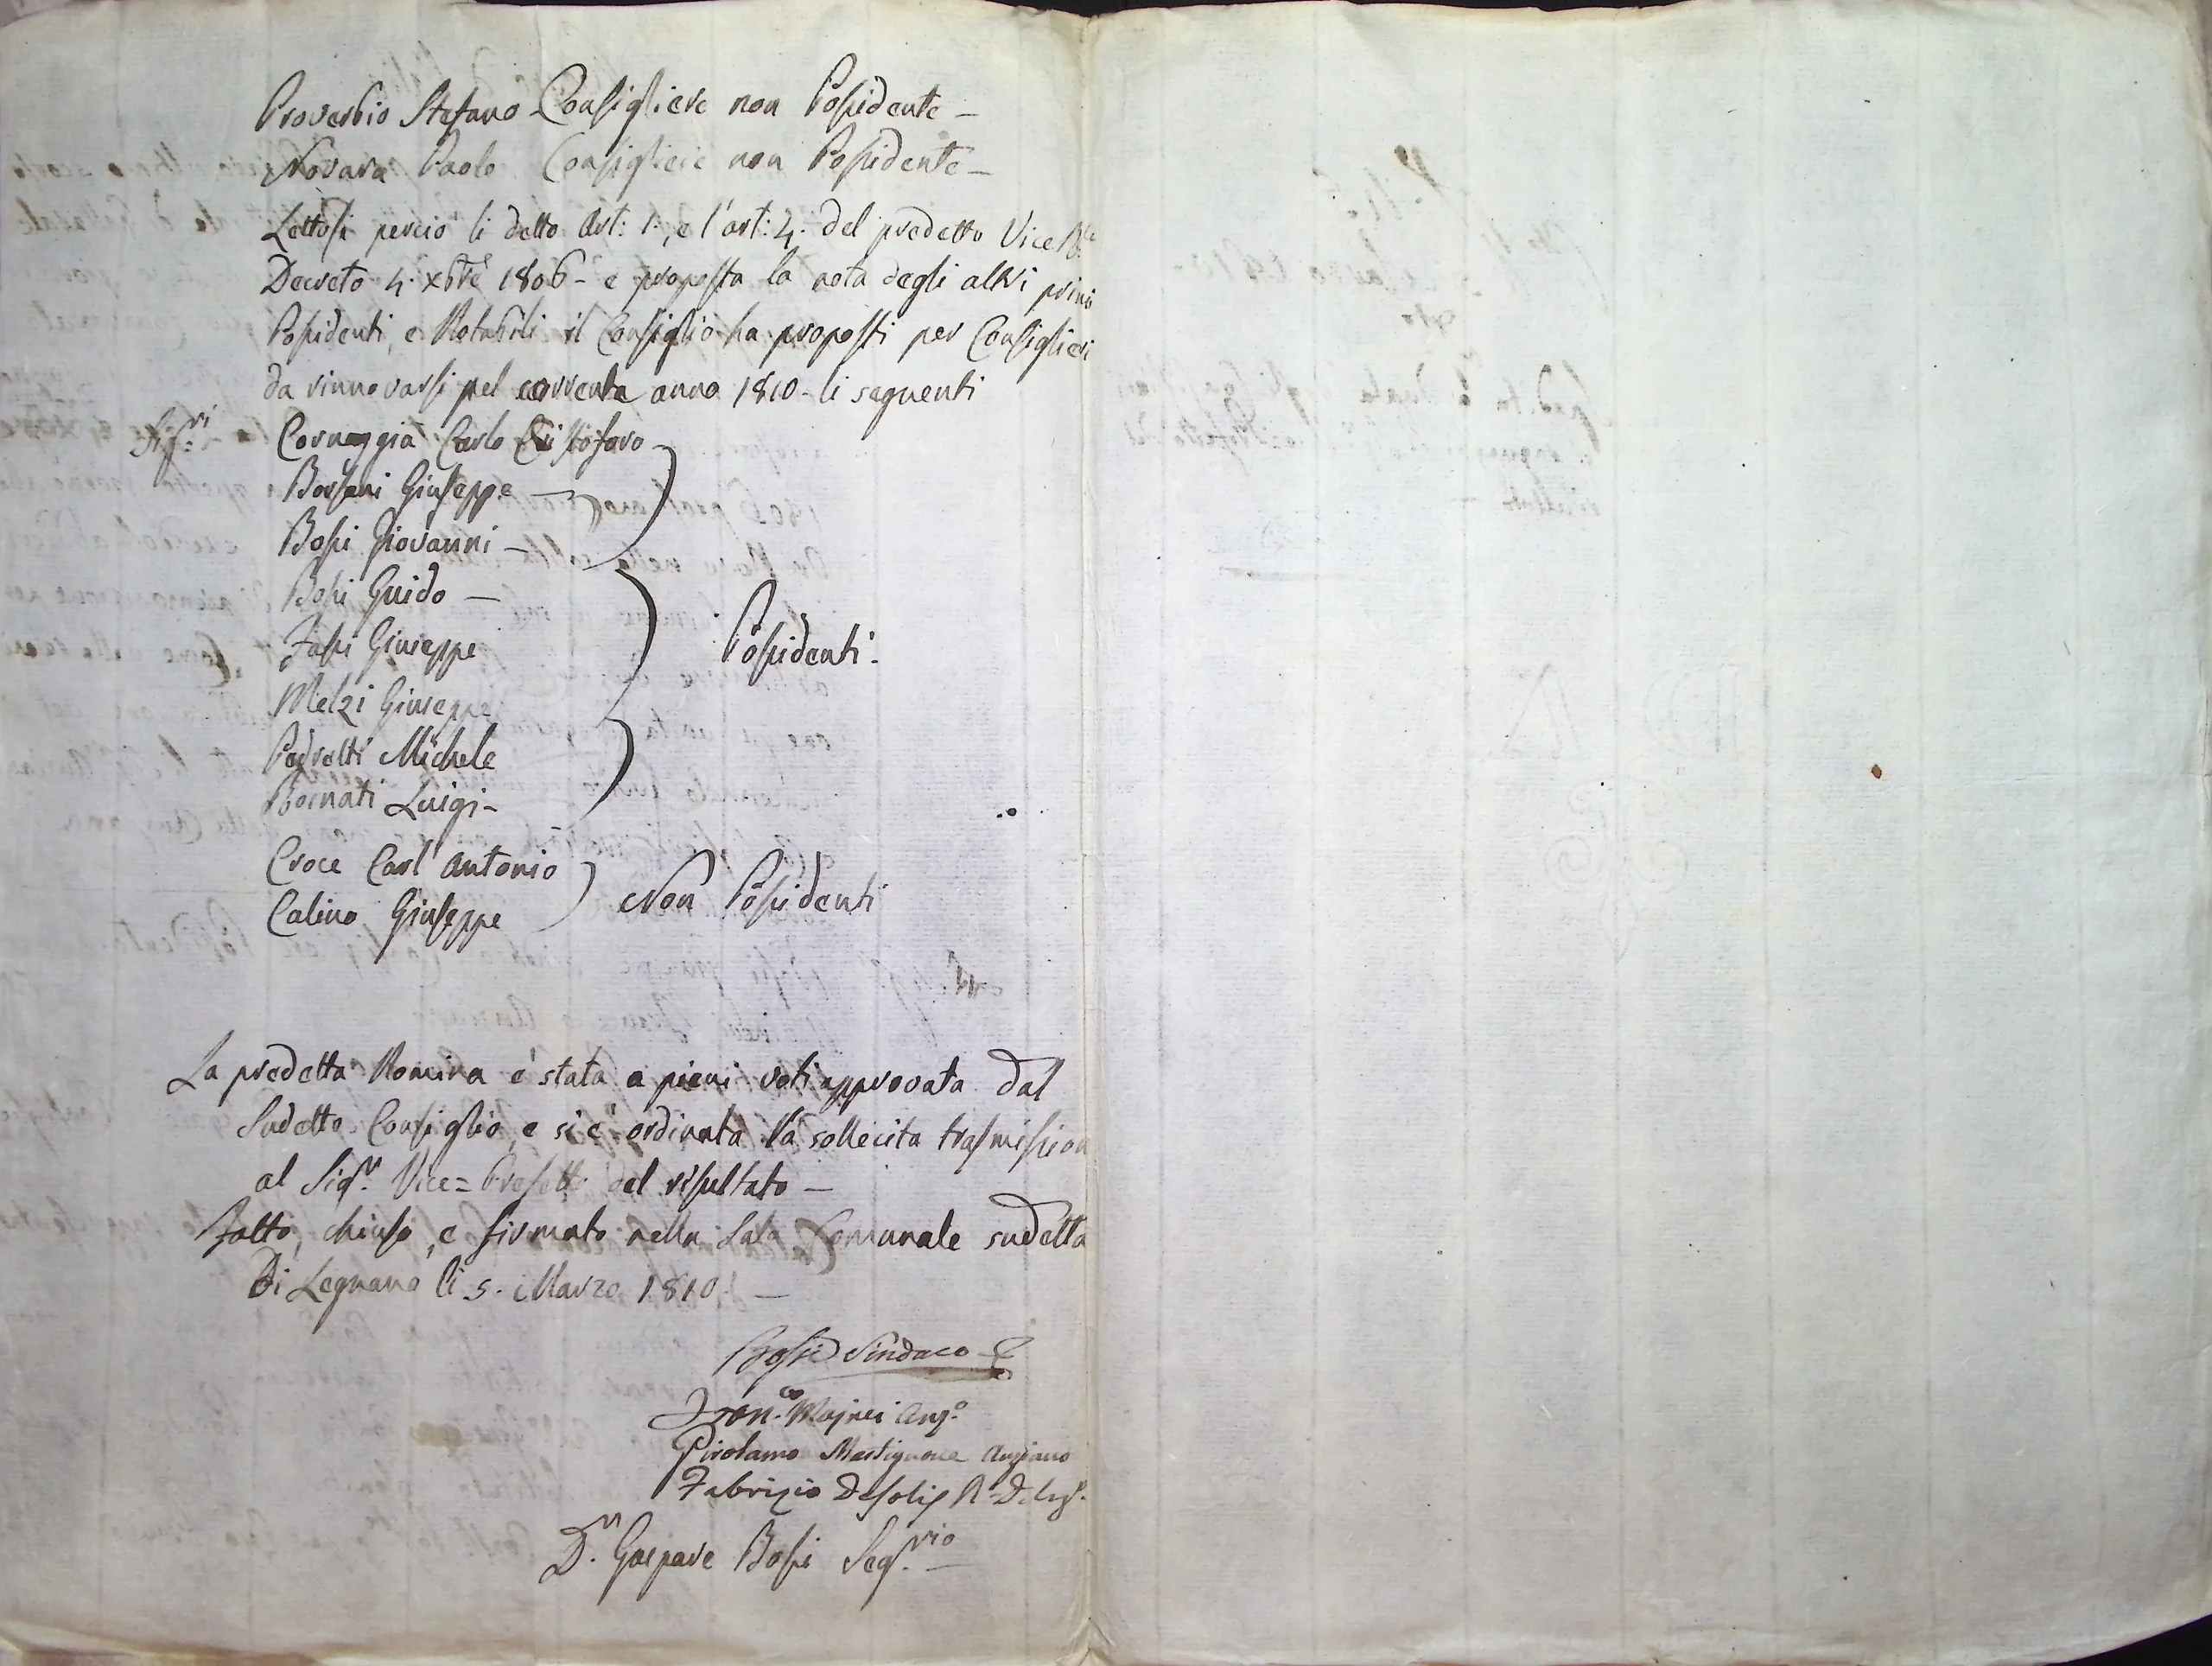 Proverbio Stefano Consigliere non Possidente –
Novara Paolo Consigliere non Possidente –
Lettosi perciò li detto Art: 1., e l'art: 4. del predetto Vice R.le
Decreto 4. Xbre 1806 – e proposta la nota degli altri primi
Possidenti, e Notabili il Consiglio ha proposti per Consiglieri
da rinnovarsi pel corrente anno 1810 – li seguenti
Sig.ri Cornaggia Carlo Cristoforo –
Borsani Giuseppe –
Bossi Giovanni –
Bossi Guido –
Fassi Giuseppe
Possidenti.
Melzi Giuseppe
Michele
Luigi –
Croce Carl'Antonio
Calino Giuseppe
Non Possidenti
La predetta Nomina è stata a pieni voti approvata dal
Sudetto Consiglio, e si è ordinata la sollecita trasmission
al Sig.r Vice = Prefetto del risultato –
Fatto, chiuso, e firmato nella Sala Comunale sudetta
Di Legnano li 5. Marzo 1810. –
Bossi Sindaco
Fran.co
Girolamo Anziano
Fabrizio
D.r Gaspare Bossi Seg.rio